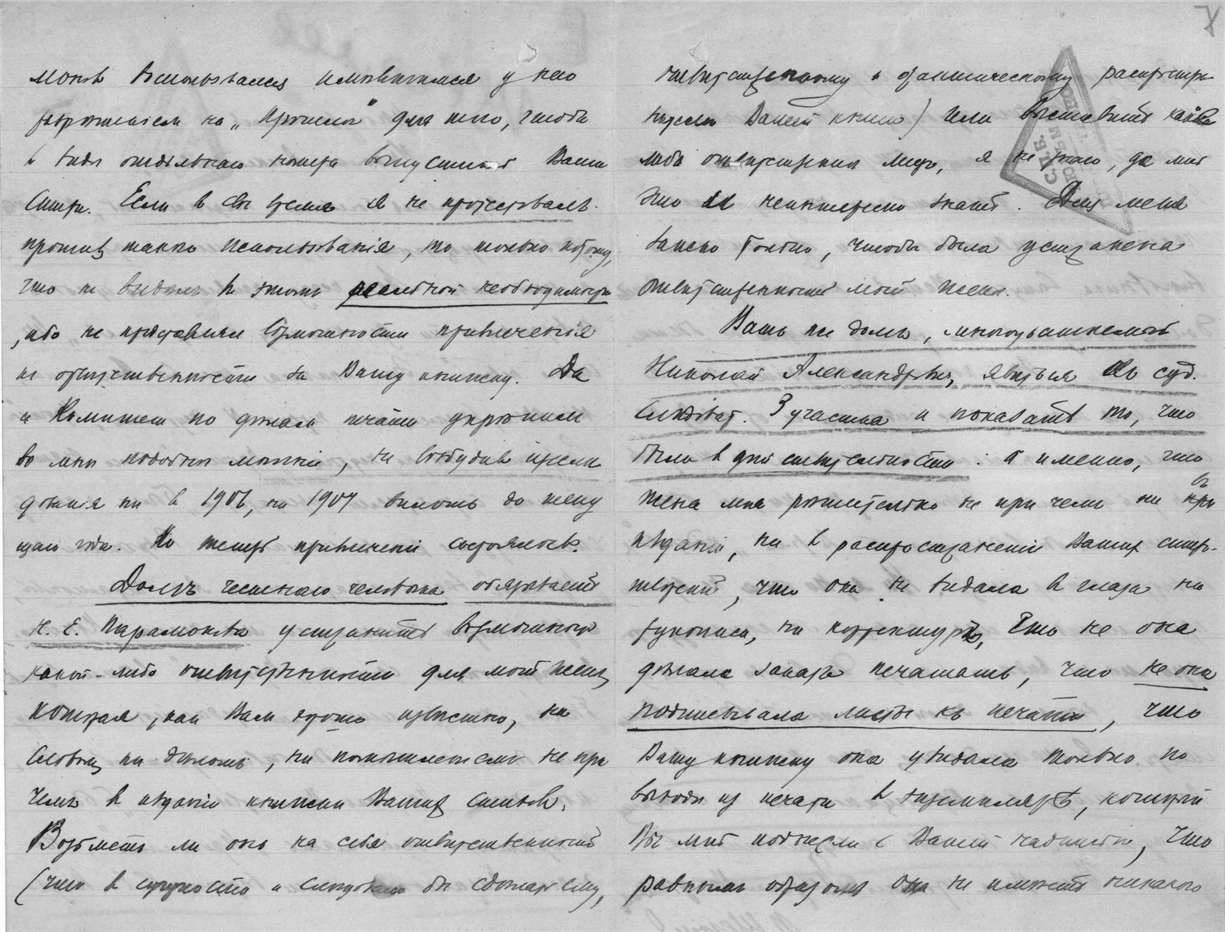 могъ воспользоваться имѣвшимся у него
разрѣшеніем на „Прошлое" для того, чтобы
в видѣ отдѣльнаго номера выпустить Ваши
Стихи. Если в свое время я не протестовалъ
противъ такого использованія, то только потому,
что не видѣлъ в этомъ реальной необходимости
, ибо не представлял возможности привлеченія
к отвѣтственности за Вашу книжку. Да
и Комитетъ по дѣлам печати укрѣпилъ
во мнѣ подобное мнѣніе, не возбудив преслѣ
дованія ни в 1906, ни 1907 вплоть до теку
щаго года. Но теперь привлеченіе состоялось.
Долгъ честнаго человѣка обязывает
Н. Е. Парамонова устранить возможность
какой-либо отвѣтственности для моей жены,
которая, как Вам хорошо извѣстно, ни
словом, ни дѣломъ, ни помышленіем не при
чемъ в изданіи книжки Ваших стихов.
Возьметъ ли онъ на себя отвѣтственность
(что в сущности и слѣдовало бы сдѣлать ему,
и органическому распростра
Вашей книги) или выставитъ какое
либо отвѣтственное лицо, я не знаю, да мнѣ
это и неинтересно знать. Для меня
важно только, чтобы была устранена
отвѣтственность моей жены.
Вашъ же долгъ, многоуважаемый
Николай Александровичъ, явиться къ суд.
слѣдоват. 3 участка и показать то, что
было в дѣйствительности: а именно, что
жена моя рѣшительно не при чем ни въ
изданіи, ни в распространеніи Ваших стихо-
твореній, что она не видала в глаза ни
рукописи, ни корректуръ, что не она
дѣлала заказъ печатать, что не она
подписывала листы къ печати, что
Вашу книжку она увидала только по
выходѣ из печати в экземплярѣ, который
Вы мнѣ поднесли с Вашей надписью, что
равнымъ образомъ она не имѣетъ никакого